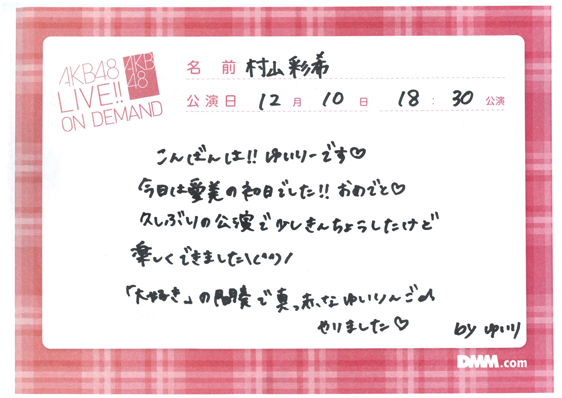 AKB48
LIVE!!
ON DEMAND
AKB
48
名前 村山彩希
公演日 12月10日 18:30公演
こんばんは!! ゆいりーです♡
今日は愛美の初日でした!! おめでと♡
久しぶりの公演で少しきんちょうしたけど
楽しくできました\(^^)/
「大好き」の間奏で真っ赤なゆいりんご♪
やりました♡
by ゆいり
DMM.com